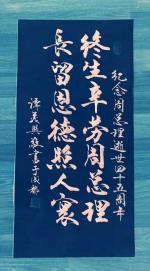 纪念周总理逝世四十五周年
终生辛劳周总理
长留恩德照人寰
谭美照敬书于成都